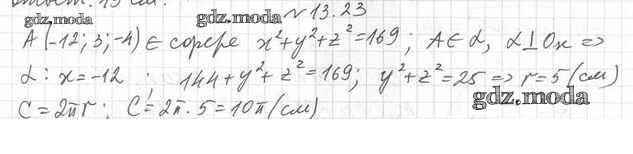 gdz.moda gdz.moda №13.23
A(-12; 3; -4) ∈ сфере x²+y²+z²=169; A∈α, α⊥Ox ⇒
α: x=-12; 144+y²+z²=169; y²+z²=25 ⇒ r=5(см)
gdz.moda
C=2πr; C=2π·5=10π(см)